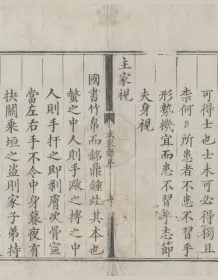 可得士也士未可必得獨且
柰何所患者不患不習乎
形勢機宜而患不習乎志節
夫身視
主家視
國書竹帛而銘鼎鍾此其本也
螫之中人則手敺之搏之中
人則手扞之即剥膚次骨寧
當左右手不令中身暮夜有
抉關乗垣之盗則家子弟持